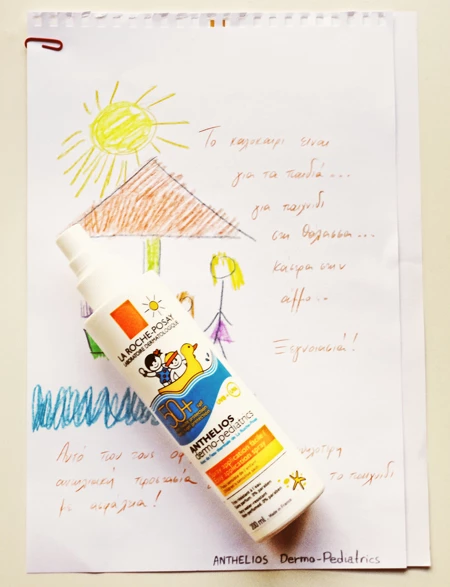 Το καλοκαίρι είναι
για τα παιδιά...
για παιχνίδι
στη θάλασσα...
κάστρα στην
άμμο...
Ξεγνοιασιά!
LA ROCHE-POSAY
LABORATOIRE DERMATOLOGIQUE
50+
ANTHELIOS
dermo-pediatrics
200 ml
Αυτό που τους
αντηλιακή προστασία
το παιχνίδι
με ασφάλεια!
ANTHELIOS Dermo-Pediatrics